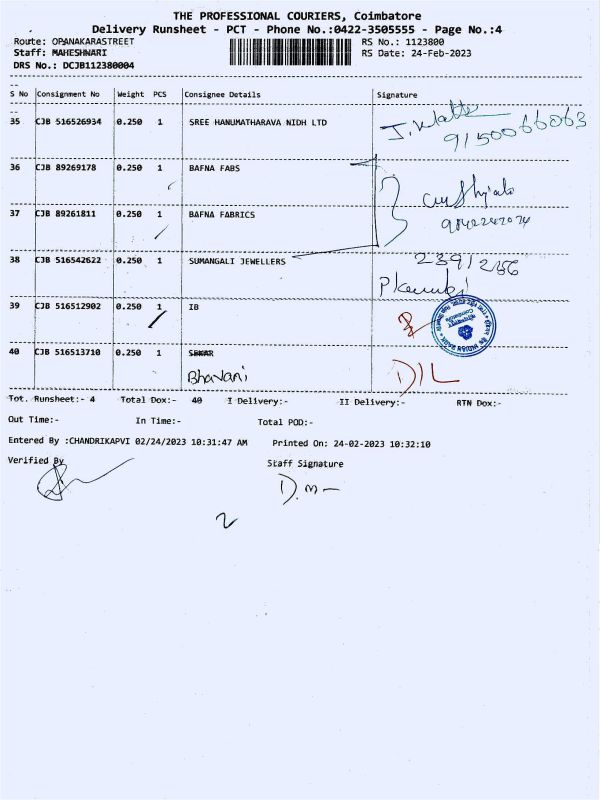 THE PROFESSIONAL COURIERS, Coimbatore
Delivery Runsheet - PCT - Phone No.:0422-3505555 - Page No.:4
Route: OPANAKARASTREET RS No.: 1123800
Staff: MAHESHWARI RS Date: 24-Feb-2023
DRS No.: DCJB112380004
S No Consignment No Weight PCS Consignee Details Signature
35 CJB 516526934 0.250 1 SREE HANUMATHARAVA NIDH LTD
9150066063
36 CJB 89269178 0.250 1 BAFNA FABS
37 CJB 89261811 0.250 1 BAFNA FABRICS
9842242074
38 CJB 516542622 0.250 1 SUMANGALI JEWELLERS
2391286
39 CJB 516512902 0.250 1 IB
40 CJB 516513710 0.250 1
Bhavani D/L
Tot. Runsheet:- 4 Total Dox:- 40 I Delivery:- II Delivery:- RTN Dox:-
Out Time:- In Time:- Total POD:-
Entered By :CHANDRIKAPVI 02/24/2023 10:31:47 AM Printed On: 24-02-2023 10:32:10
Verified By Staff Signature
2